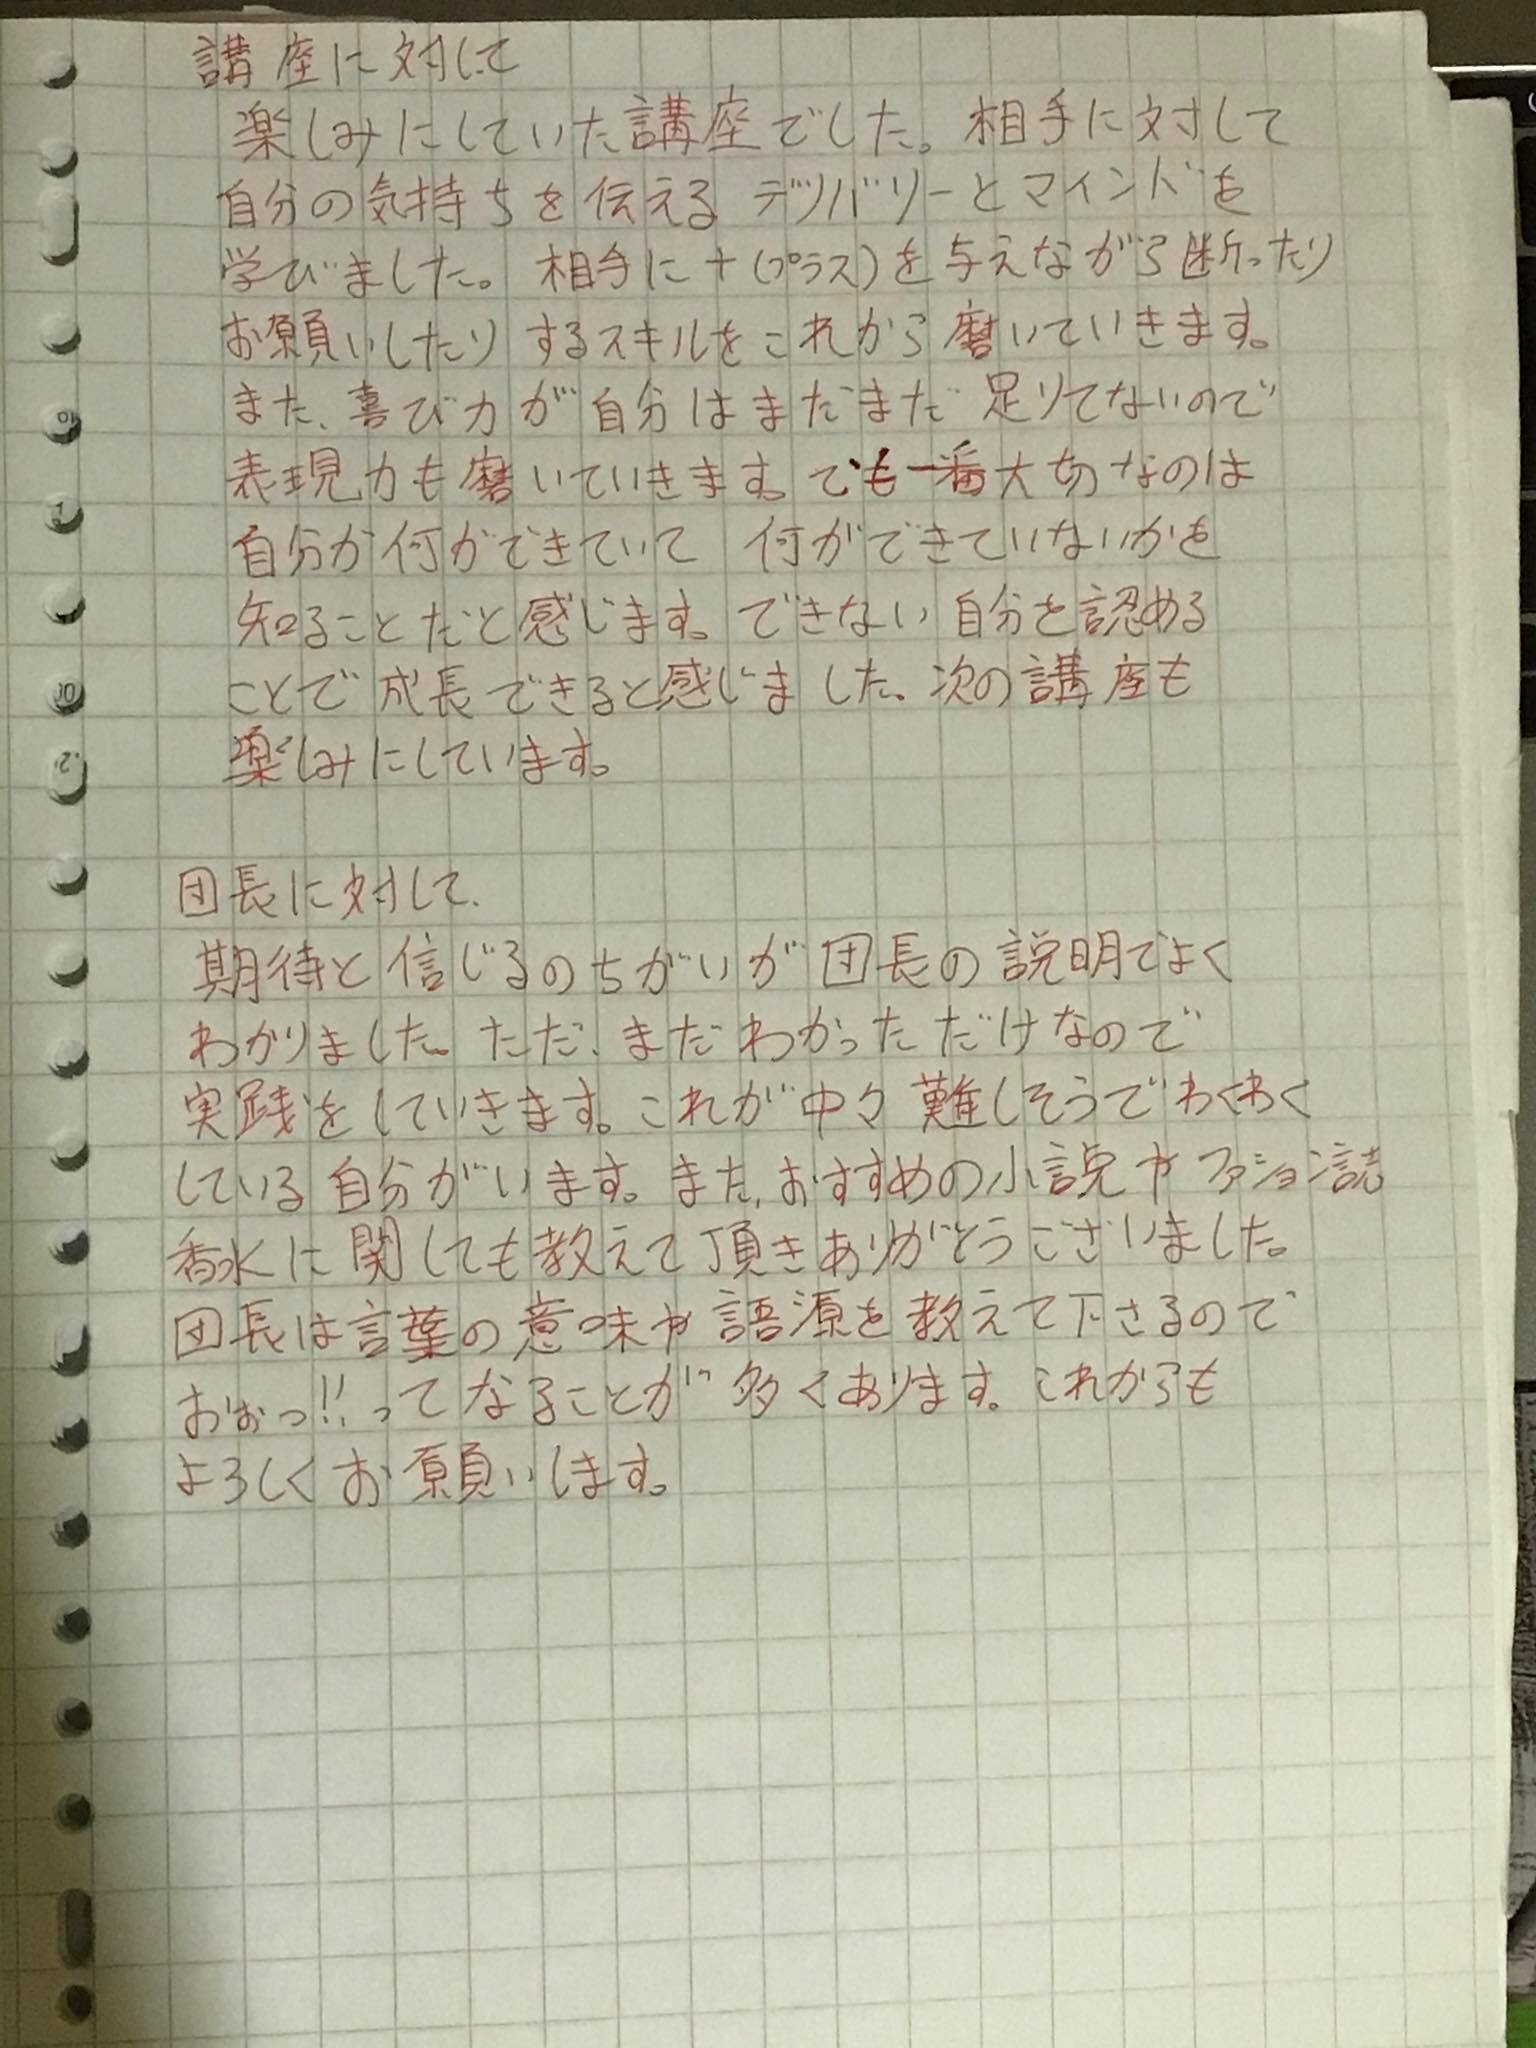 講座に対して
楽しみにしていた講座でした。相手に対して
自分の気持ちを伝える デリバリーとマインドを
学びました。相手に+(プラス)を与えながら断ったり
お願いしたりするスキルをこれから磨いていきます。
また、喜び力が自分はまだまだ足りてないので
表現力も磨いていきます。でも一番大切なのは
自分が何ができていて 何ができていないかを
知ることだと感じます。できない自分を認める
ことで成長できると感じました。次の講座も
楽しみにしています。
団長に対して.
期待と信じるのちがいが団長の説明でよく
わかりました。ただ、まだわかっただけなので
実践をしていきます。これが中々難しそうでわくわく
している自分がいます。また、おすすめの小説やファション誌
香水に関しても教えて頂きありがとうございました。
団長は言葉の意味や語源を教えて下さるので
おぉっ!!ってなることが多くあります。これからも
よろしくお願いします。